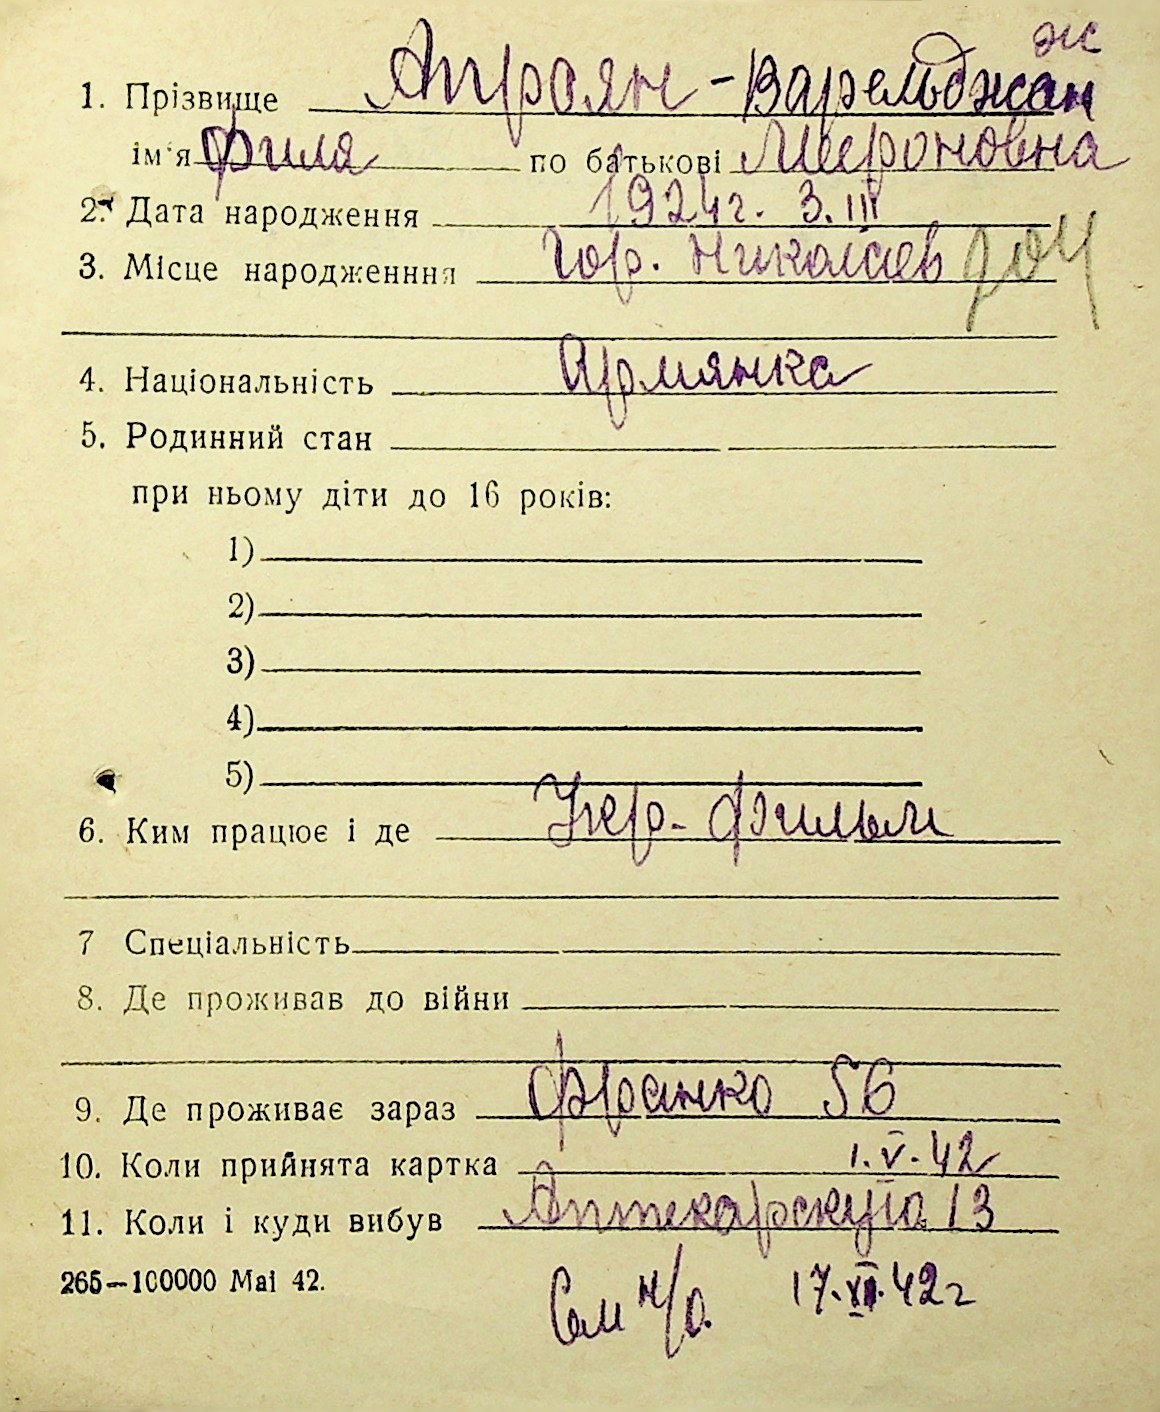 ж
1. Прізвище Апроян - Варельджан
ім'я Филя по батькові Мироновна
2. Дата народження 1924 г. 3.III
3. Місце народженння Гор. Николаев доч
4. Національність Армянка
5. Родинний стан
при ньому діти до 16 років:
1)
2)
3)
4)
5)
6. Ким працює і де Укр-фильм
7 Спеціальність
8. Де проживав до війни
9. Де проживає зараз Франко 56
10. Коли прийнята картка 1.V.42
11. Коли і куди вибув Аптекарскую 13
265—100000 Mai 42.
См н/о. 17.XII.42 г